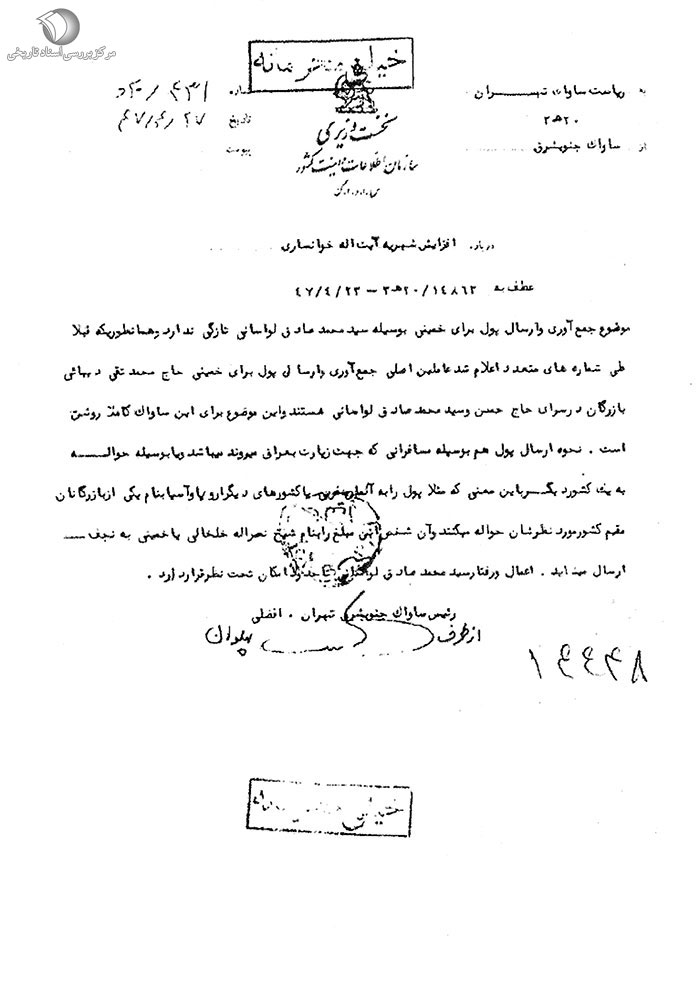 مرکز بررسی اسناد تاریخی
خیلی محرمانه
به ریاست ساواك تهـــران
۲۰هـ۳
از ساواك جنوبشرق
نخست وزیری
سازمان اطلاعات و امنیت کشور
س.ا.و.ا.ک
شماره
تاریخ ۴۷/۴/۲۷
پیوست
درباره افزایش شهریه آیت اله خوانساری
عطف به ۲۰/۱۴۸۶۲هـ۳ – ۴۷/۴/۲۳
موضوع جمع آوری وارسال پول برای خمینی بوسیله سید محمد صادق لواسانی تازگی ندارد وهمانطوریکه قبلا
طی شماره های متعدد اعلام شد عاملین اصلی جمع آوری وارسال پول برای خمینی حاج محمد تقی دیبائی
بازرگان درسرای حاج حسن وسید محمد صادق لواسانی هستند واین موضوع برای این ساواك کاملا روشن
است . نحوه ارسال پول هم بوسیله مسافرانی که جهت زیارت بعراق میروند میباشد ویا بوسیله حوالـــه
به یك کشور دیگـر باین معنی که مثلا پول رابه آلمان غربی یاکشورهای دیگراروپا وآسیا بنام یکی ازبازرگانان
مقیم کشورمورد نظرشان حواله میکنند وآن شخص این مبلغ رابنام شیخ نصراله خلخالی یاخمینی به نجف
ارسال مینماید . اعمال ورفتار سید محمد صادق لواسانی تاحدود امکان تحت نظر قرار دارد .
رئیس ساواك جنوبشرق تهران . افضلی
از طرف
پهلوان
۱۴۴۳۸
خیلی محرمانه